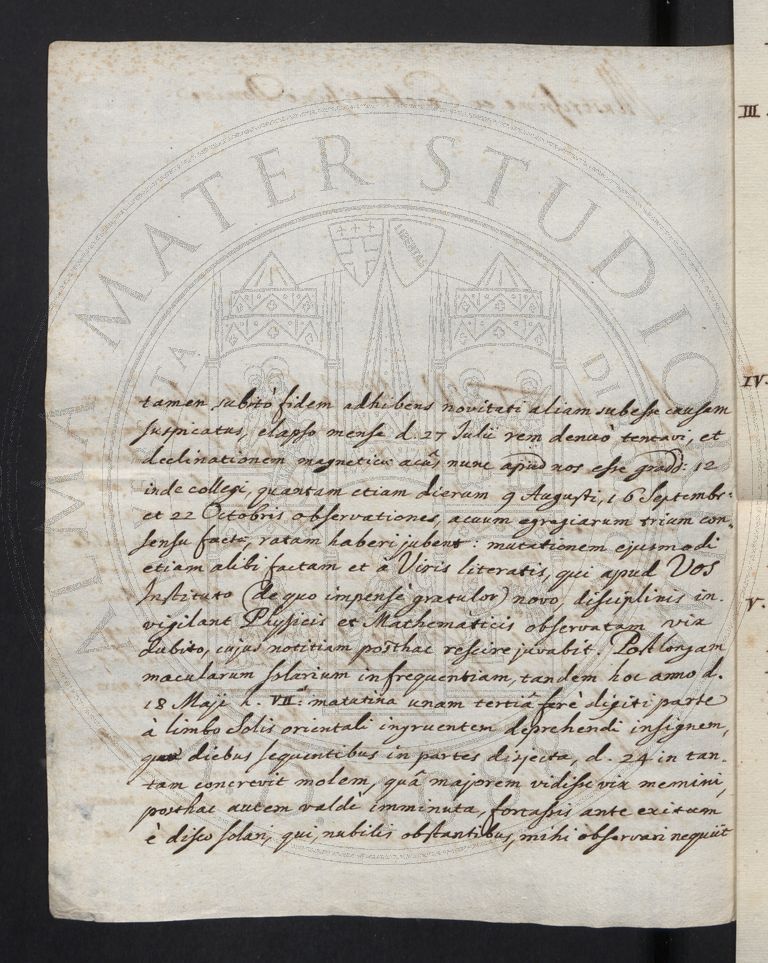 ALMA MATER STUDIORUM
LIBERTAS
III.
IV.
V.
tamen subitò fidem adhibens novitati aliam subesse causam
suspicatus, elapso mense d. 27 Julii rem denuò tentavi, et
declinationem magneticæ acûs nunc apud nos esse grad: 12
inde collegi, quantam etiam dierum 9 Augusti, 16 Septembr:
et 22 Octobris observationes, acuum egregiarum trium con-
sensu factæ, ratam haberi jubent: mutationem ejusmodi
etiam alibi factam et à Viris literatis, qui apud Vos
Instituto (de quo impensè gratulor) novo, disciplinis in-
vigilant Physicis et Mathematicis observatam vix
dubito, cujus notitiam posthac rescire juvabit. Post longam
macularum solarium infrequentiam, tandem hoc anno d.
18 Maji h. VII. matutina unam tertiâ ferè digiti parte
à limbo Solis orientali ingruentem deprehendi insignem,
quæ diebus sequentibus in partes disjecta, d. 24 in tan-
tam concrevit molem, quâ majorem vidisse vix memini,
posthac autem valdè imminuta, fortassis ante exitum
è disco solari, qui, nubilis obstantibus, mihi observari nequiit